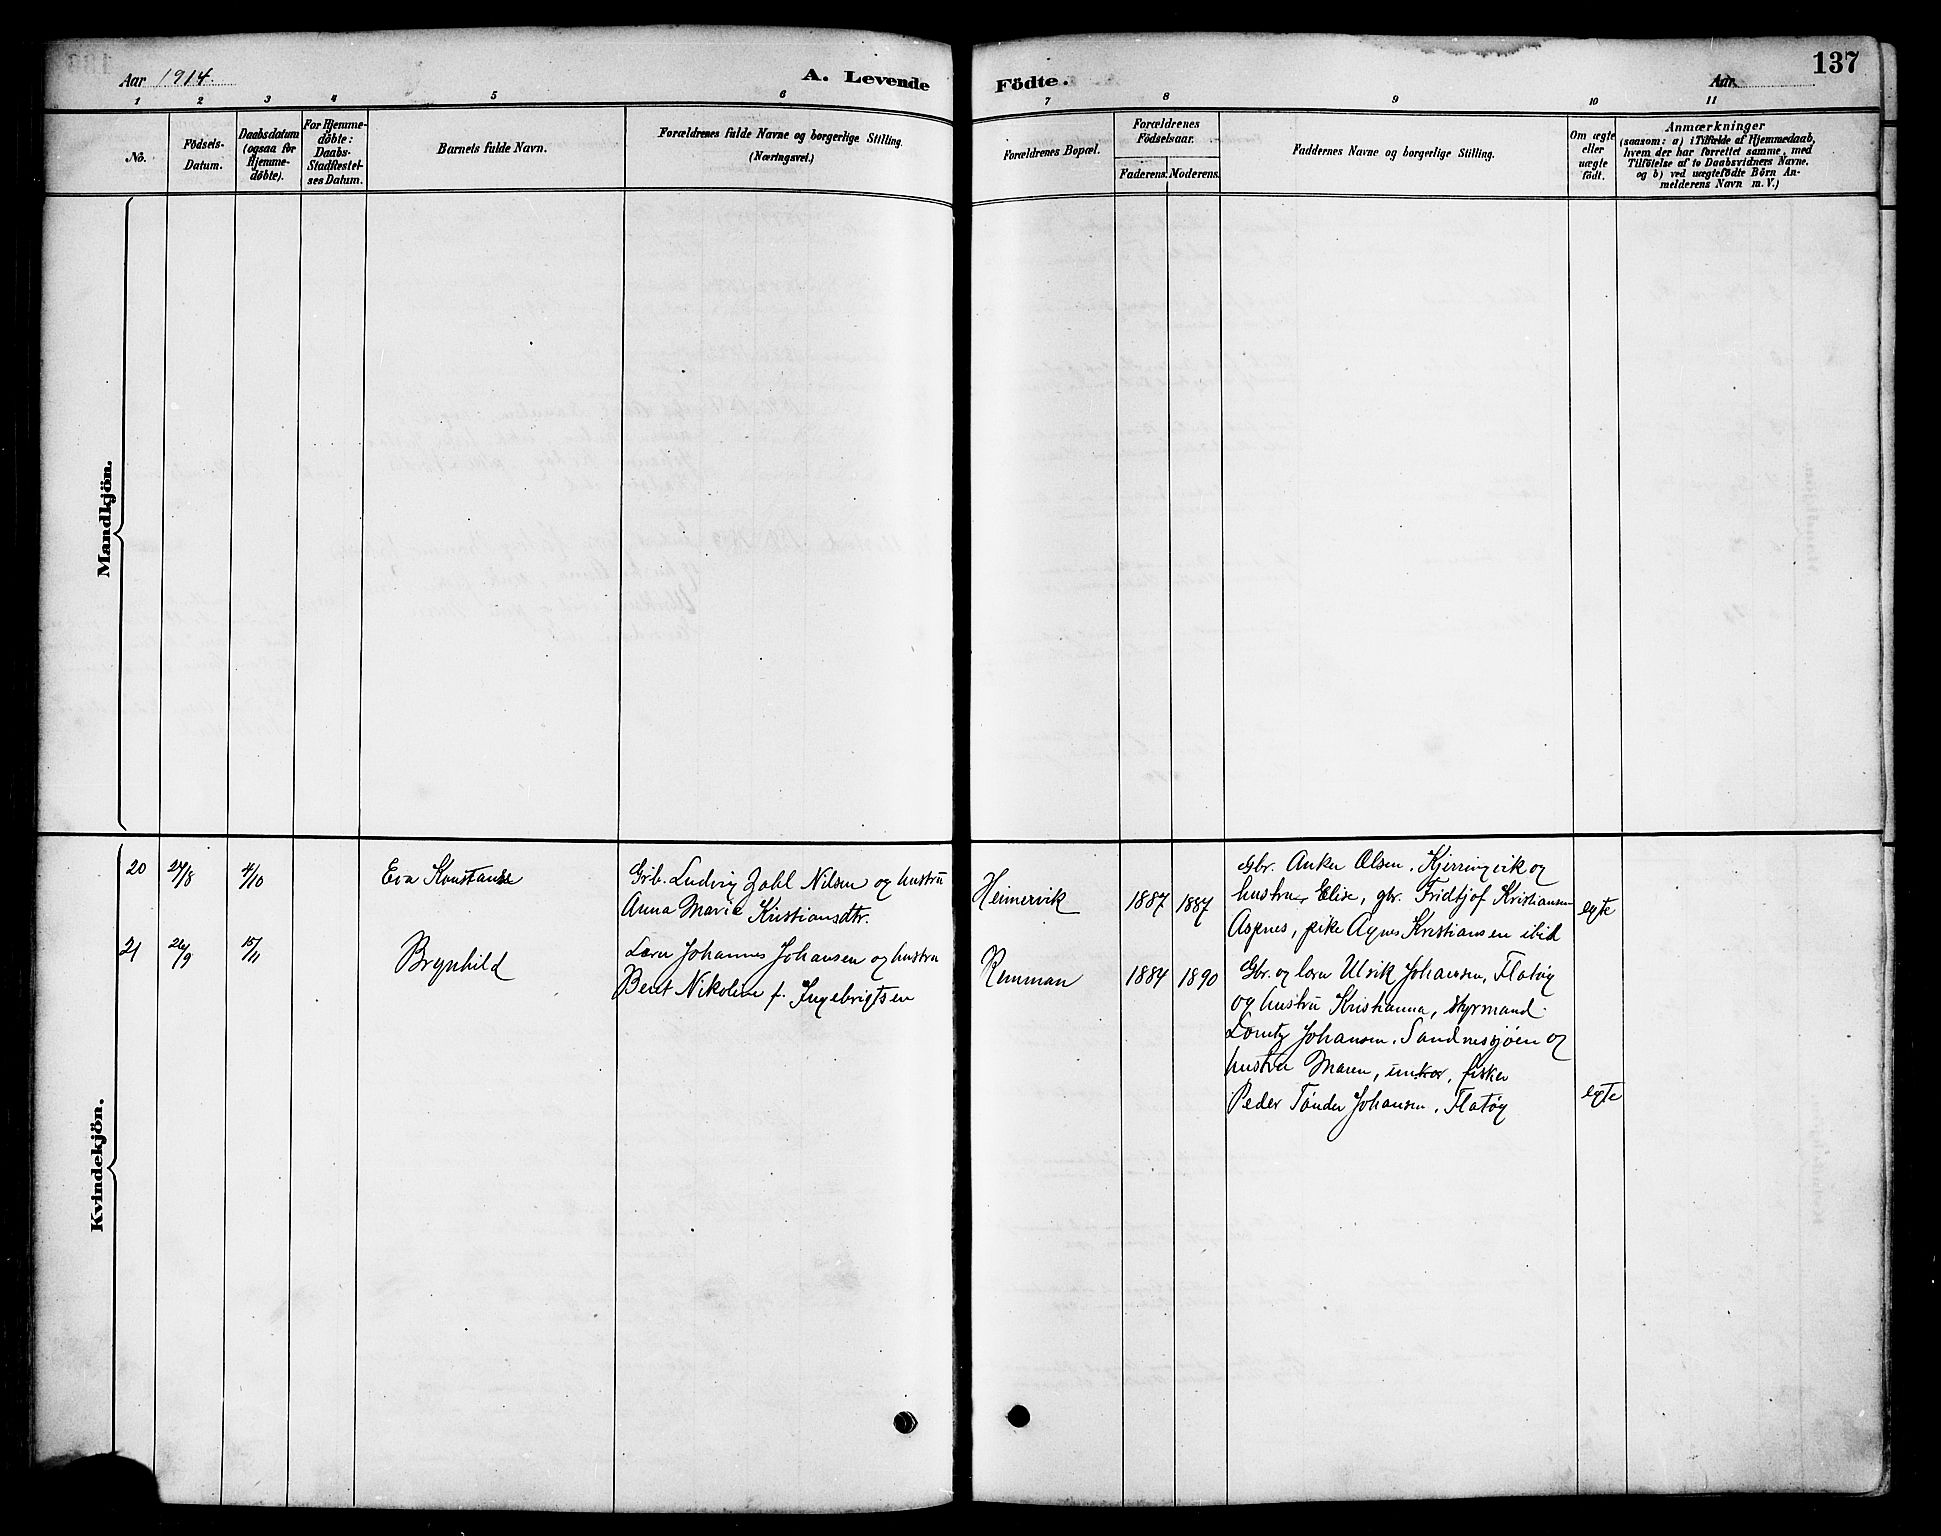 Aar 1914.
A. Levende
Födte.
Aar
137
1 2 3 4 5 6 7 8 9 10 11
No.
Födsels-
Datum.
Daabsdatum
(ogsaa for
Hjemme-
døbte).
For Hjemme-
døbte:
Daabs-
Stadfæstel-
ses Datum.
Barnets fulde Navn.
Forældrenes fulde Navne og borgerlige Stilling.
(Næringsvei.)
Forældrenes Bopæl.
Forældrenes
Födselsaar.
Faderens. Moderens.
Faddernes Navne og borgerlige Stilling.
Om ægte
eller
uægte
födt.
Anmærkninger
(saasom: a) i Tilfælde af Hjemmedaab,
hvem der har forrettet samme, med
Tilföielse af to Daabsvidners Navne,
og b) ved uægtefödte Börn An-
melderens Navn m. V.)
Mandkjön.
Kvindekjön.
20 27/8 4/10 Eva Konstanse
Grb. Ludvig Zahl Nilsen og hustru
Anna Marie Kristiansdtr.
Heimervik 1887 1887
Gbr. Anker Olsen, Kjerringvik og
hustru Elise, gbr. Fridtjof Kristiansen
Aspnes, pike Agnes Kristiansen ibid
egte
21 26/9 15/11 Brynhild
Lærer Johannes Johansen og hustru
Berit Nikoline f. Ingebrigtsen
Remman 1884 1890
Gbr. og lærer Ulrik Johansen, Flatøy
og hustru Kristianna, styrmand
Lorntz Johansen, Sandnessjøen og
hustru Maren, fisker
Peder Tønder Johansen, Flatøy
egte